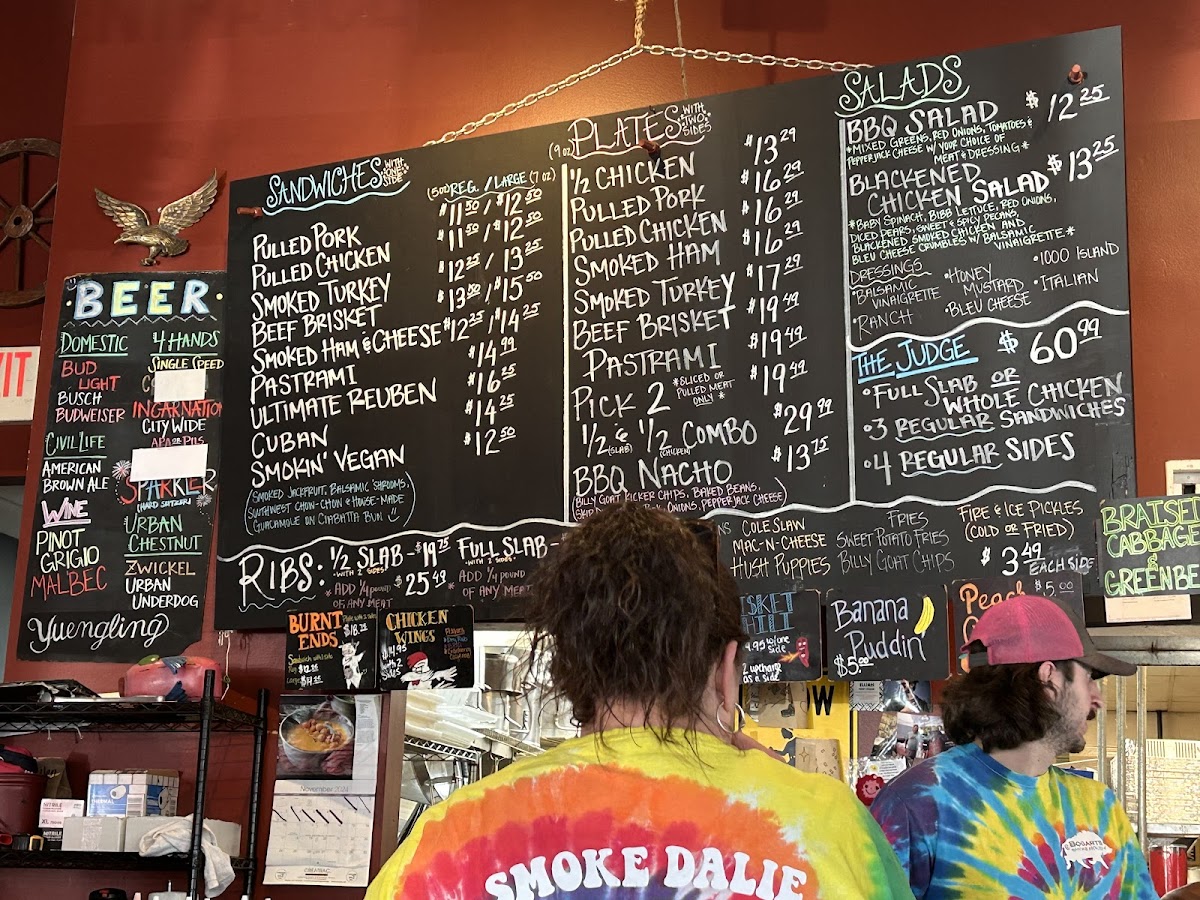 SANDWICHES WITH ONE SIDE
(5oz) REG. / LARGE (7 oz)
PULLED PORK $11.50 / $12.50
PULLED CHICKEN $11.50 / $12.50
SMOKED TURKEY $12.25 / $13.25
BEEF BRISKET $13.50 / $15.50
SMOKED HAM & CHEESE $12.25 / $14.25
PASTRAMI $14.99
ULTIMATE REUBEN $16.25
CUBAN $14.25
SMOKIN' VEGAN $12.50
(SMOKED JACKFRUIT, BALSAMIC 'SHROOMS,
SOUTHWEST CHOW-CHOW & HOUSE-MADE
GUACAMOLE ON CIABATTA BUN)
(9 oz) PLATES WITH TWO SIDES
1/2 CHICKEN $13.29
PULLED PORK $16.29
PULLED CHICKEN $16.29
SMOKED HAM $16.29
SMOKED TURKEY $17.29
BEEF BRISKET $19.49
PASTRAMI $19.49
PICK 2 *SLICED OR PULLED MEAT ONLY* $19.49
1/2 (SLAB) & 1/2 (CHICKEN) COMBO $29.99
BBQ NACHO $13.75
(BILLY GOAT KICKER CHIPS, BAKED BEANS,
ONIONS, PEPPERJACK CHEESE)
SALADS
BBQ SALAD $12.25
*MIXED GREENS, RED ONIONS, TOMATOES &
PEPPERJACK CHEESE W/ YOUR CHOICE OF
MEAT & DRESSING*
BLACKENED
CHICKEN SALAD $13.25
*BABY SPINACH, BIBB LETTUCE, RED ONIONS,
DICED PEARS, SWEET & SPICY PECANS,
BLACKENED SMOKED CHICKEN AND
BLEU CHEESE CRUMBLES W/ BALSAMIC
VINAIGRETTE*
DRESSINGS
•BALSAMIC VINAIGRETTE
•RANCH
•HONEY MUSTARD
•BLEU CHEESE
•1000 ISLAND
•ITALIAN
THE JUDGE $60.99
•FULL SLAB OR
WHOLE CHICKEN
•3 REGULAR SANDWICHES
•4 REGULAR SIDES
RIBS: 1/2 SLAB - $19.75
WITH 2 SIDES
*ADD 1/4 POUND $25.49
OF ANY MEAT
FULL SLAB -
WITH 2 SIDES
ADD 1/4 POUND
OF ANY MEAT
COLE SLAW
MAC-N-CHEESE
HUSH PUPPIES
FRIES
SWEET POTATO FRIES
BILLY GOAT CHIPS
FIRE & ICE PICKLES
(COLD OR FRIED)
$3.49 EACH SIDE
•BEER•
DOMESTIC
BUD
LIGHT
BUSCH
BUDWEISER
CIVIL LIFE
AMERICAN
BROWN ALE
WINE
PINOT
GRIGIO
MALBEC
Yuengling
4 HANDS
SINGLE SPEED
INCARNATION
CITY WIDE
APA OR PILS
SPARKLER
(HARD SELTZER)
URBAN
CHESTNUT
ZWICKEL
URBAN
UNDERDOG
BURNT
ENDS
CHICKEN
WINGS
BANANA
PUDDIN'
$5.00
$5.00
November 2024
EXIT
SMOKE DALIE
BOGARTS